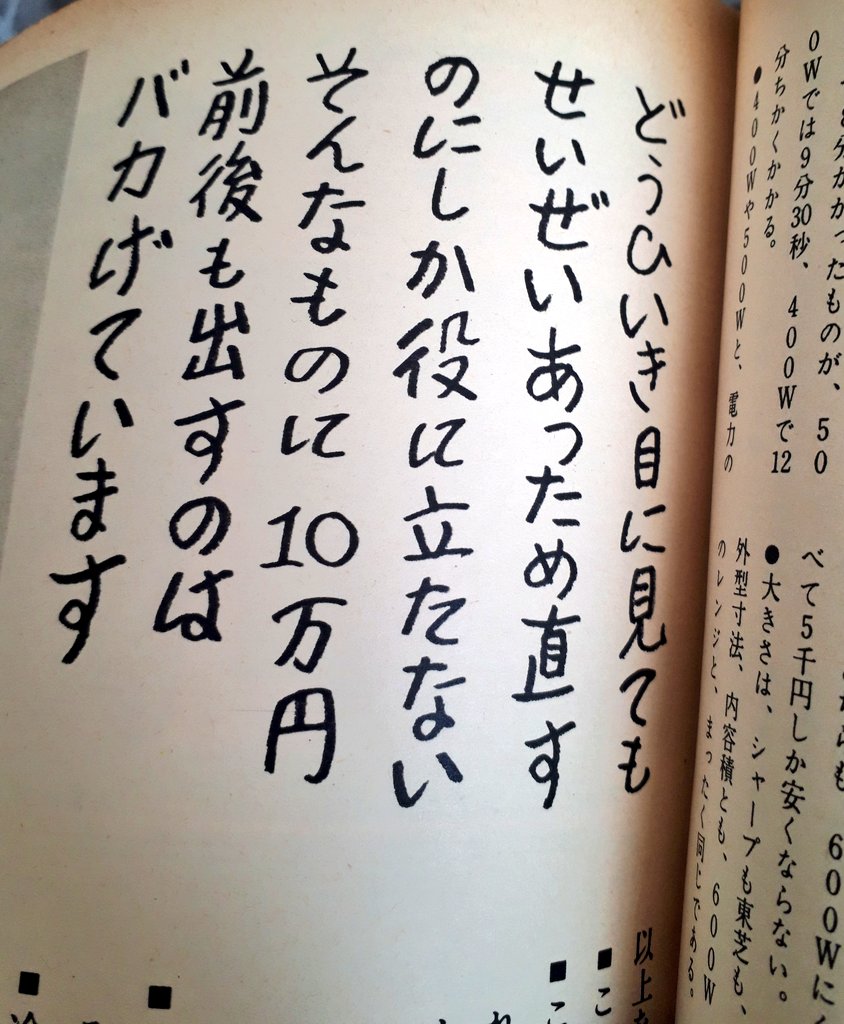 分かかったものが、50
0Wでは9分30秒、400Wで12
分ちかくかかる。
●400Wや500Wと、電力の
べて5千円しか安くならない。
●大きさは、シャープも東芝も、
外型寸法、内容積とも、600W
のレンジと、まったく同じである。
どうひいき目に見ても
せいぜいあっため直す
のにしか役に立たない
そんなものに10万円
前後も出すのは
バカげています
以上
■こ
■こ
■
■